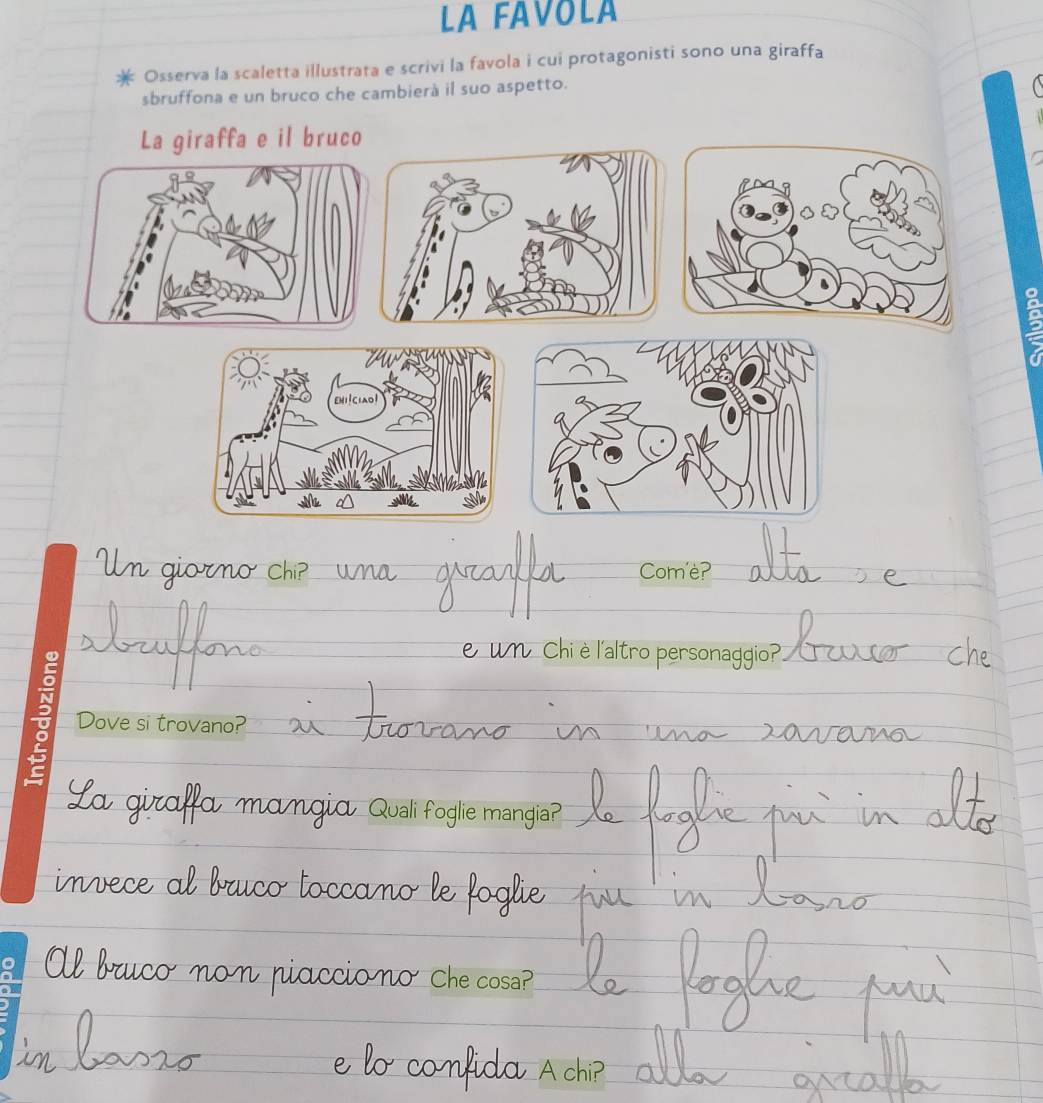 LA FAVOLA
Osserva la scaletta illustrata e scrivi la favola i cui protagonisti sono una giraffa
sbruffona e un bruco che cambierà il suo aspetto.
La giraffa e il bruco
EHI! CIAO!
Un giorno Chi? una giraffa Com'è? alta e
sbruffona e un Chi è l'altro personaggio? bruco che
Dove si trovano? si trovano in una savana
La giraffa mangia Quali foglie mangia? le foglie più in alto
invece al bruco toccano le foglie più in basso
Al bruco non piacciono Che cosa? le foglie più
in basso e lo confida A chi? alla giraffa
Introduzione
Sviluppo